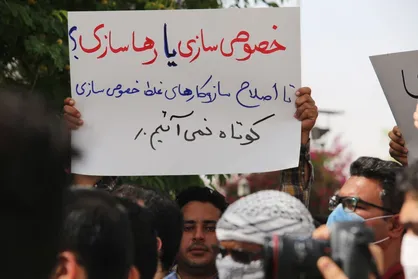 خصوصی سازی یا رها سازی؟
تا اصلاح سازوکارهای غلط خصوصی سازی
کوتاه نمی آئیم.